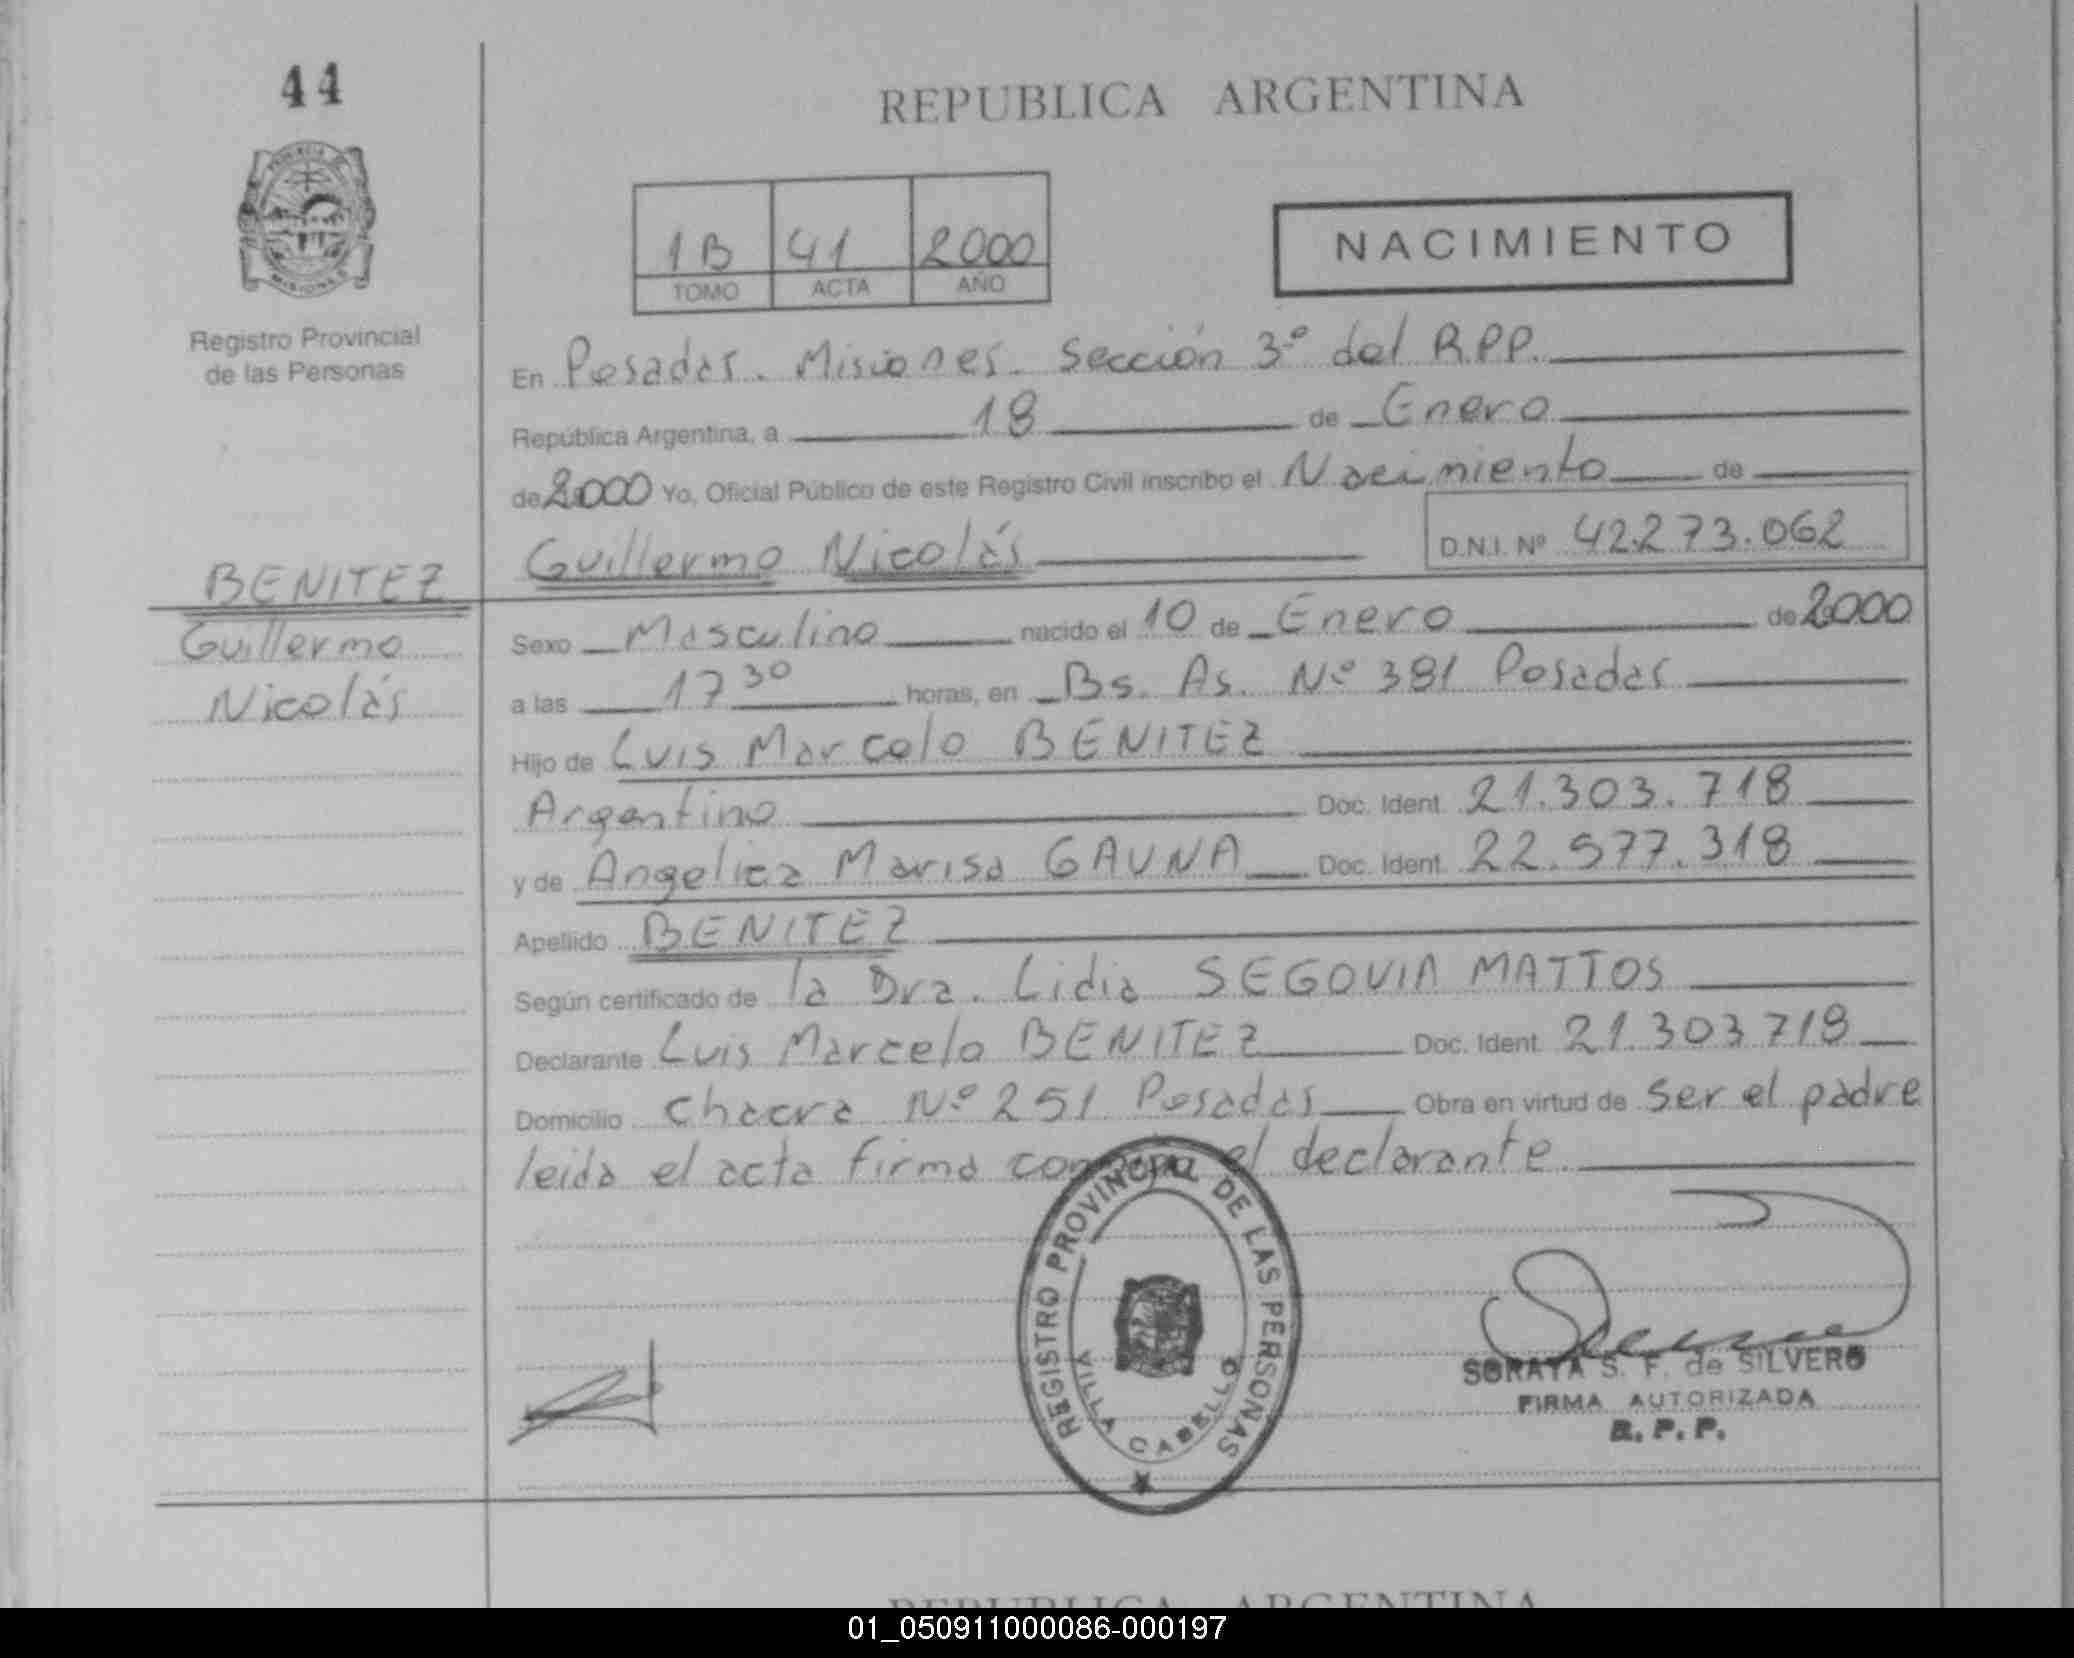 44
REPUBLICA ARGENTINA
PROVINCIA DE
MISIONES
Registro Provincial
de las Personas
1B 41 2000
TOMO ACTA AÑO
NACIMIENTO
En Posadas. Misiones. Sección 3º del R.P.P.
República Argentina, a 18 de Enero
de 2000 Yo, Oficial Público de este Registro Civil inscribo el Nacimiento de
Guillermo Nicolás D.N.I. Nº 42.273.062
BENITEZ
Guillermo
Nicolás
Sexo Masculino nacido el 10 de Enero de 2000
a las 17 30 horas, en Bs. As. Nº 381 Posadas
Hijo de Luis Marcelo BENITEZ
Argentino Doc. Ident. 21.303.718
y de Angelica Marisa GAUNA Doc. Ident. 22.577.318
Apellido BENITEZ
Según certificado de la Dra. Lidia SEGOVIA MATTOS
Declarante Luis Marcelo BENITEZ Doc. Ident. 21.303.718
Domicilio Chacra Nº 251 Posadas Obra en virtud de ser el padre
leida el acta firma el declarante
REGISTRO PROVINCIAL DE LAS PERSONAS
VILLA CABELLO
SORAYA S. F. de SILVERO
FIRMA AUTORIZADA
R. P. P.
REPUBLICA ARGENTINA
01_050911000086-000197